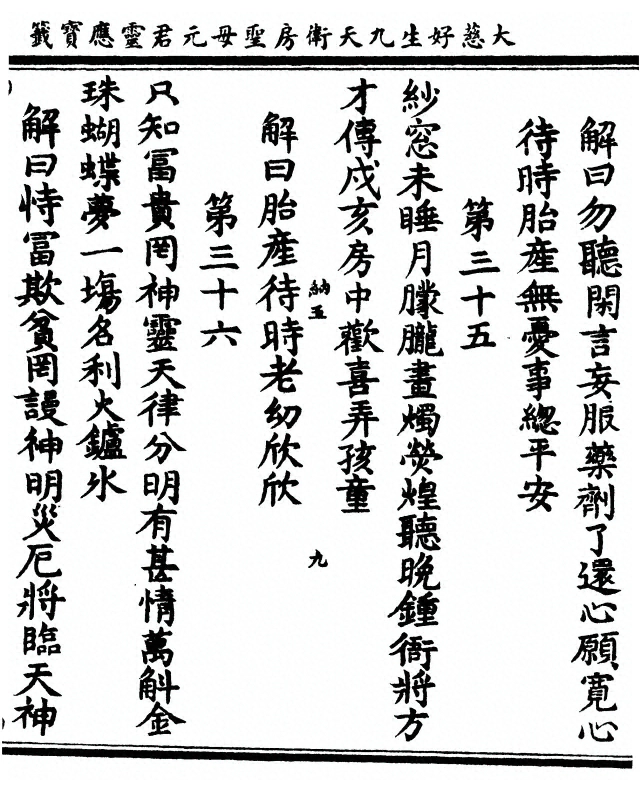 大慈好生九天衛房聖母元君靈應寶籤
解曰勿聽閑言妄服藥劑了還心願寬心
待時胎產無憂事總平安
第三十五
紗窓未睡月朦朧畫燭熒煌聽晚鍾衙將方
才傳戌亥房中歡喜弄孩童
解曰胎產待時老幼欣欣
納五
九
第三十六
只知冨貴罔神靈天律分明有甚情萬斛金
珠蝴蝶夢一塲名利火鑪氷
解曰恃冨欺貧罔謾神明災厄將臨天神